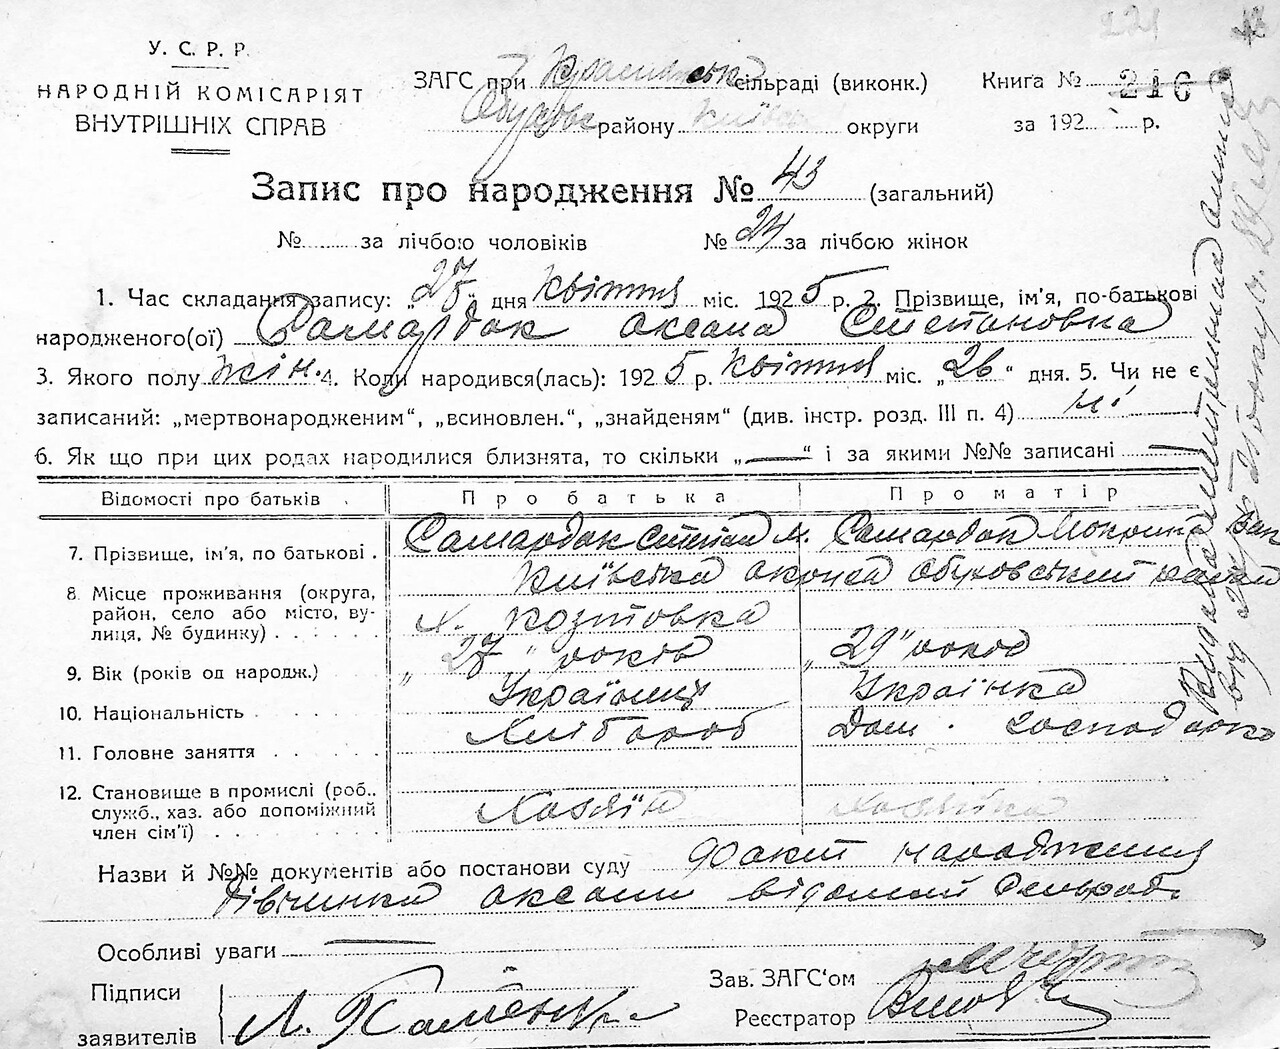 У. С. Р. Р.
НАРОДНІЙ КОМІСАРІЯТ
ВНУТРІШНІХ СПРАВ
ЗАГС при сільраді (виконк.)
району округи
Книга № 216
за 192 р.
Запис про народження № 43 (загальний)
№ за лічбою чоловіків № 24 за лічбою жінок
1. Час складання запису: „27" дня квітня міс. 1925 р. 2. Прізвище, ім'я, по-батькові
народженого(ої) Самардак Оксана Степановка
3. Якого полу жін. 4. Коли народився(лась): 1925 р. квітня міс. „26" дня. 5. Чи не є
записаний: „мертвонародженим", „всиновлен.", „знайденям" (див. інстр. розд. III п. 4) ні
6. Як що при цих родах народилися близнята, то скільки „—" і за якими №№ записані —
Відомості про батьків Про батька Про матір
7. Прізвище, ім'я, по батькові Самардак Степан М. Самардак
8. Місце проживання (округа, район, село або місто, вулиця, № будинку) Київська округа Обуховський
х.
9. Вік (років од народж.) „27" років „29" років
10. Національність Українець Українка
11. Головне заняття Хлібороб Дом. господарка
12. Становище в промислі (роб., служб., хаз. або допоміжний член сім'ї) Хазяїн Хазяйка
Назви й №№ документів або постанови суду акт народження
дівчинки Оксани
Особливі уваги —
Підписи
заявителів Л.
Зав. ЗАГС'ом
Реєстратор